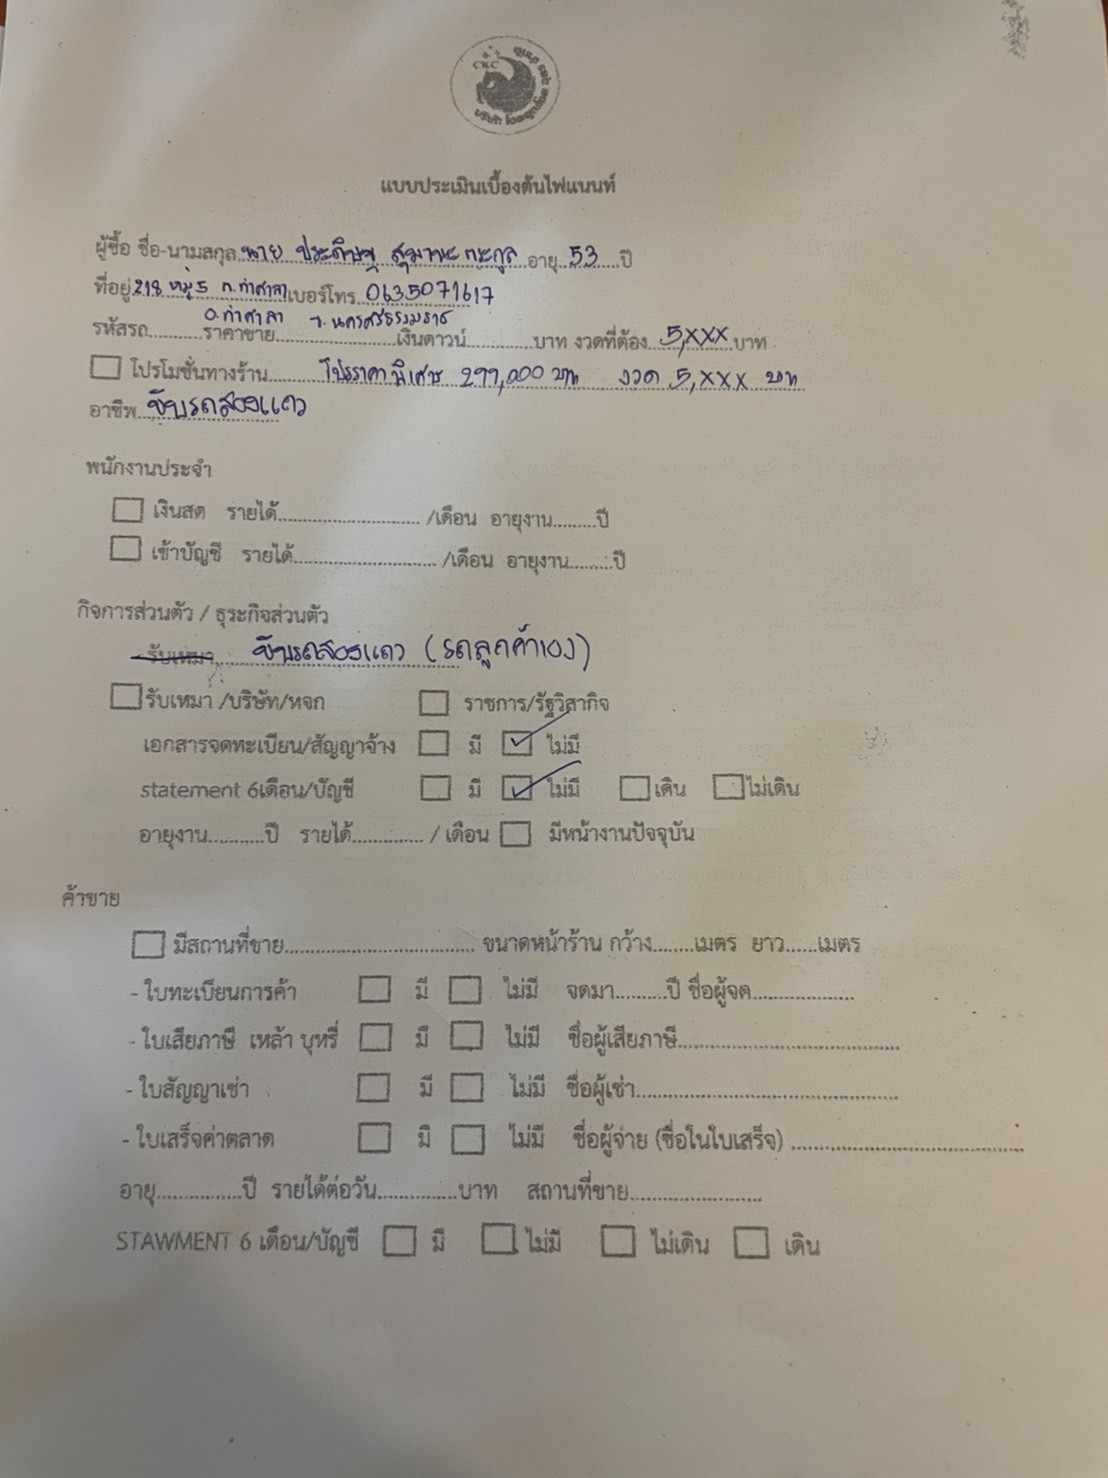 CKC
แบบประเมินเบื้องต้นไฟแนนท์
ผู้ซื้อ ชื่อ-นามสกุล นาย ประดิษฐ อายุ 53 ปี
ที่อยู่ 218 หมู่ 5 ต.ท่าศาลา เบอร์โทร 0635071617
อ.ท่าศาลา จ.นครศรีธรรมราช
รหัสรถ..........ราคาขาย......................เงินดาวน์............บาท งวดที่ต้อง 5,xxx บาท
☐ โปรโมชั่นทางร้าน โปรราคาพิเศษ 299,000 บาท งวด 5,xxx บาท
อาชีพ ขับรถสองแถว
พนักงานประจำ
☐ เงินสด รายได้........................../เดือน อายุงาน.........ปี
☐ เข้าบัญชี รายได้........................../เดือน อายุงาน.........ปี
กิจการส่วนตัว / ธุระกิจส่วนตัว
รับเหมา ขับรถสองแถว (รถลูกค้าเอง)
☐ รับเหมา /บริษัท/หจก ☐ ราชการ/รัฐวิสากิจ
เอกสารจดทะเบียน/สัญญาจ้าง ☐ มี ☑ ไม่มี
statement 6เดือน/บัญชี ☐ มี ☑ ไม่มี ☐ เดิน ☐ ไม่เดิน
อายุงาน...........ปี รายได้............. / เดือน ☐ มีหน้างานปัจจุบัน
ค้าขาย
☐ มีสถานที่ขาย.................................... ขนาดหน้าร้าน กว้าง........เมตร ยาว......เมตร
- ใบทะเบียนการค้า ☐ มี ☐ ไม่มี จดมา..........ปี ชื่อผู้จด...................
- ใบเสียภาษี เหล้า บุหรี่ ☐ มี ☐ ไม่มี ชื่อผู้เสียภาษี..........................................
- ใบสัญญาเช่า ☐ มี ☐ ไม่มี ชื่อผู้เช่า..................................................
- ใบเสร็จค่าตลาด ☐ มี ☐ ไม่มี ชื่อผู้จ่าย (ชื่อในใบเสร็จ) ............................................
อายุ................ปี รายได้ต่อวัน...............บาท สถานที่ขาย.........................
STAWMENT 6 เดือน/บัญชี ☐ มี ☐ ไม่มี ☐ ไม่เดิน ☐ เดิน